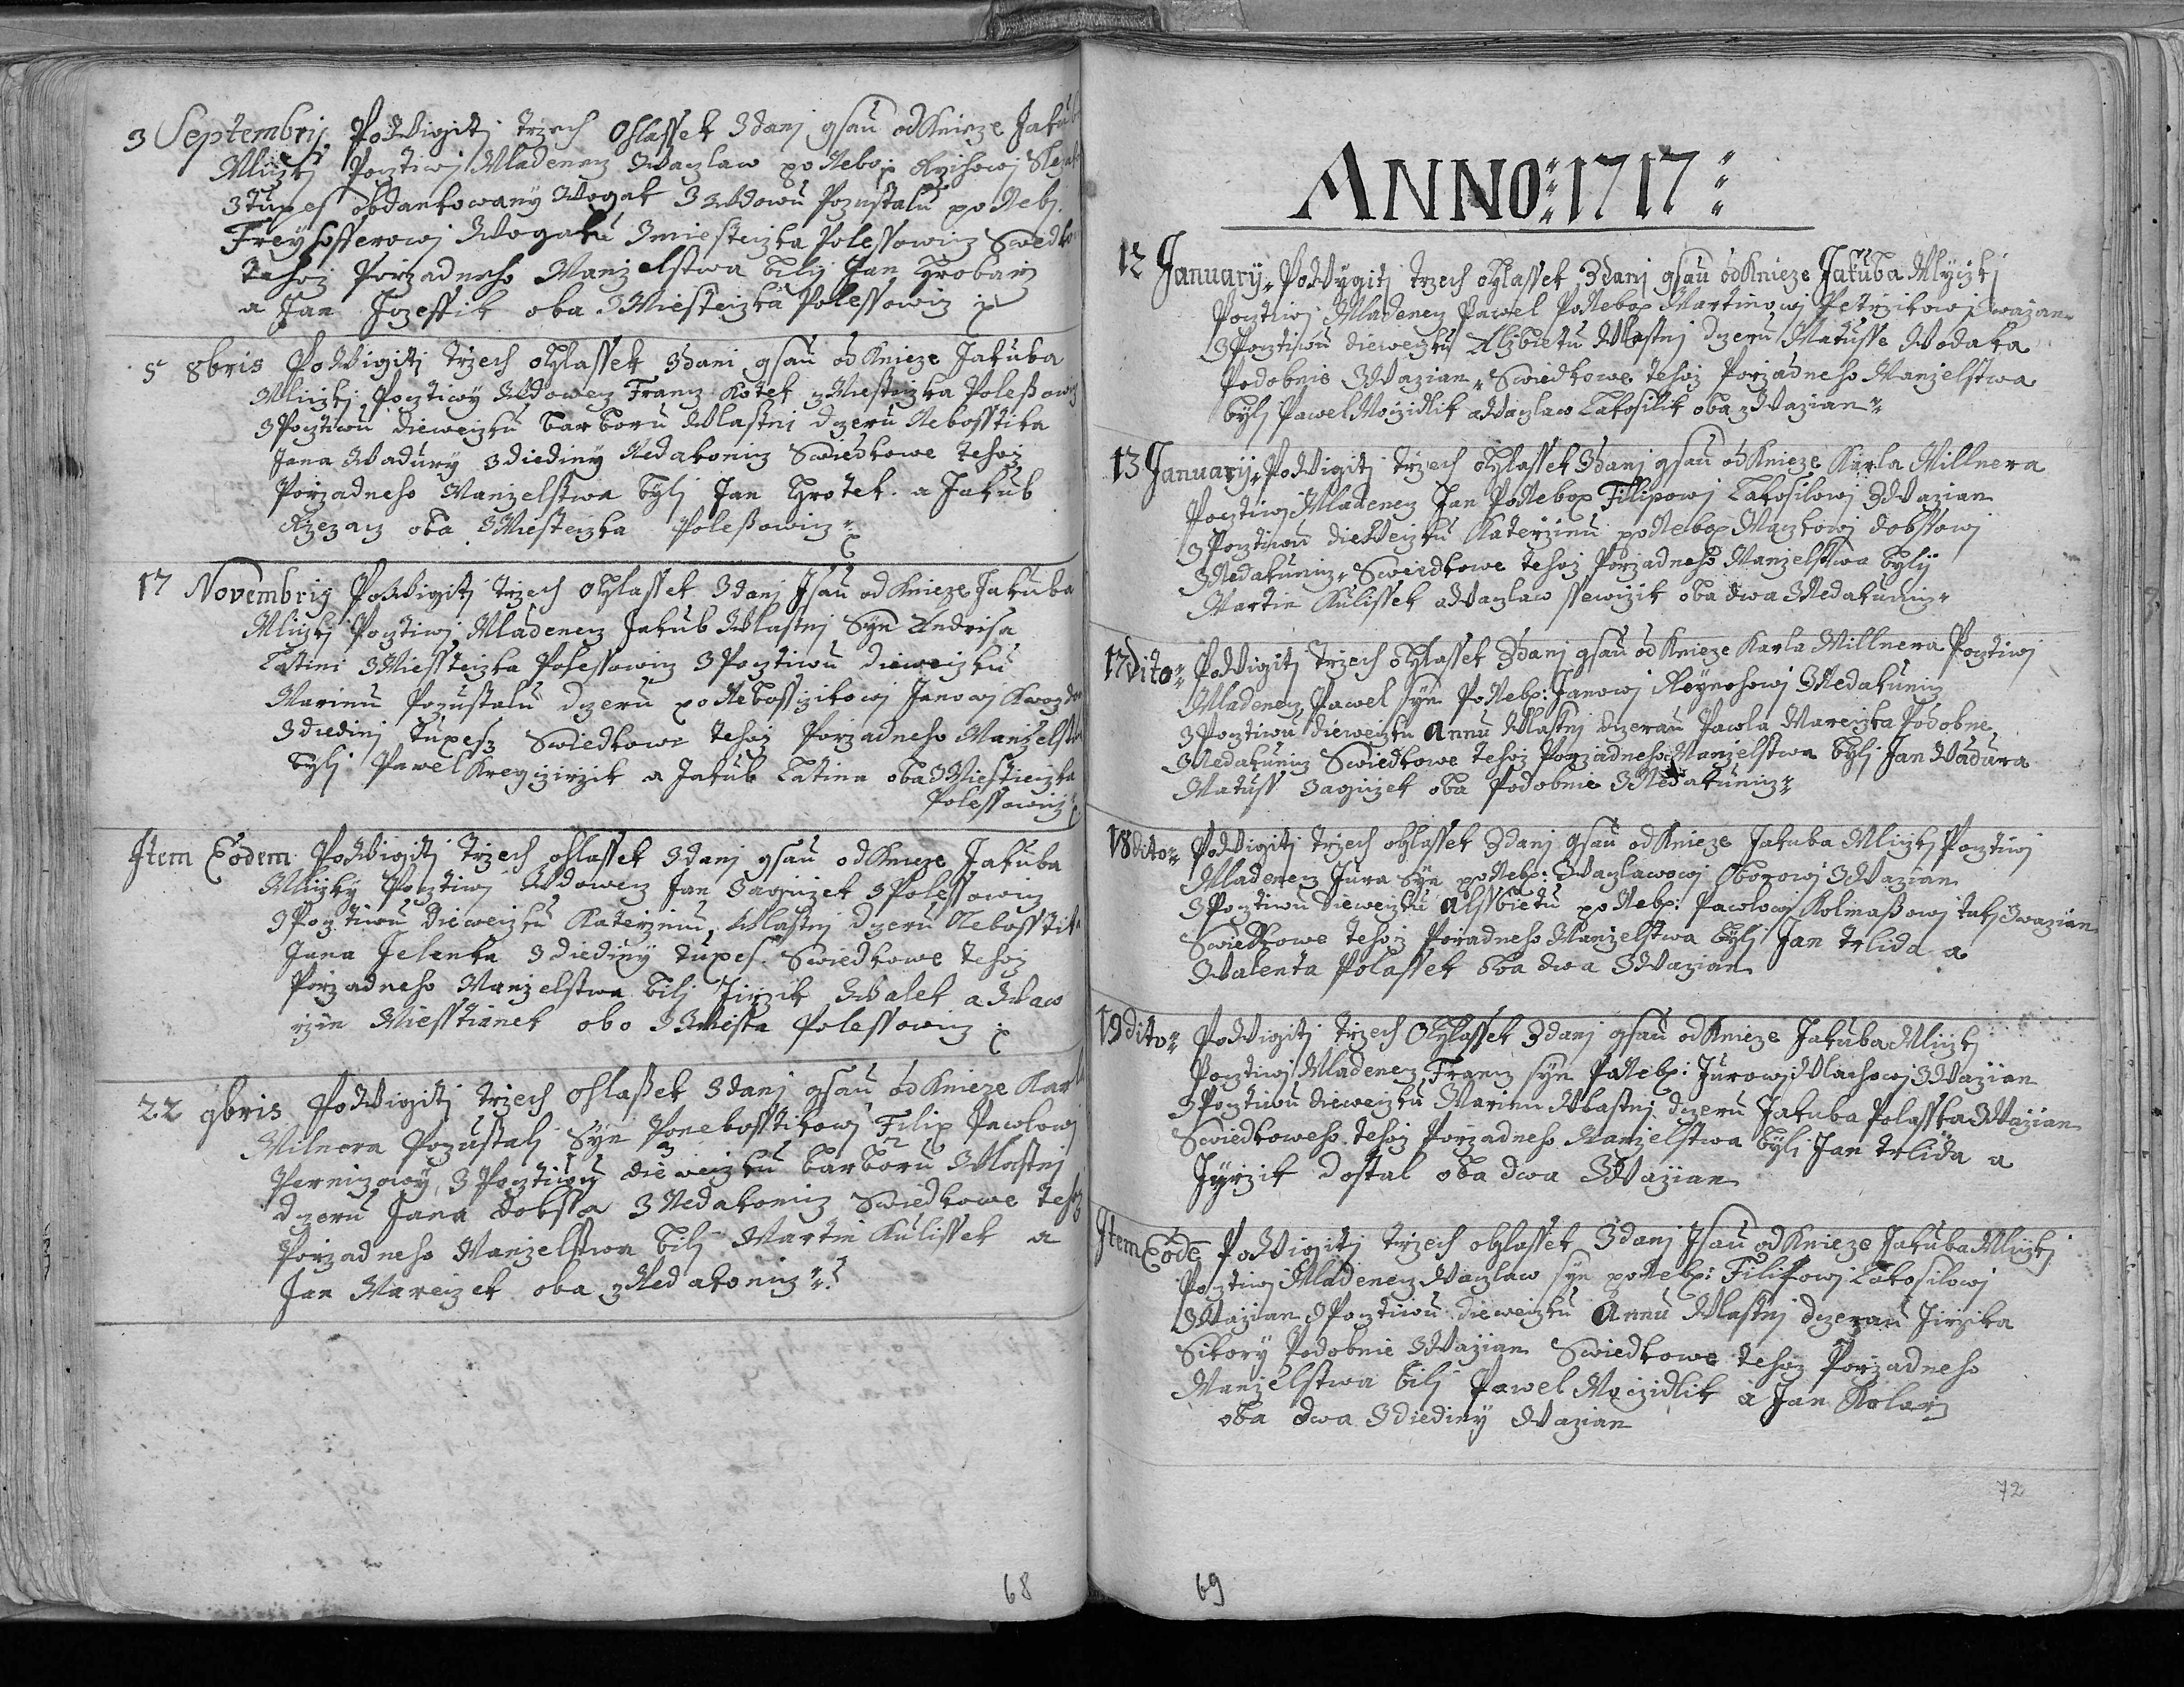 3 Septembrij. Po Wigitj trzech Ohlassek Zdanj gsau od Knieze Jakub
Mlizkj Pocztiwj Mladenecz Waczlaw po Nebo:
Ztupes obdankowany Wogak Z Wdowu Pozustalu po Neb:
Freyhofferowj Wogaku Zmiesteczka Polessowicz Swiedko
tehoz Porzadneho Manzelstwa bilj Jan Hrobarz
a Jan Jozeffik oba Z Miesteczka Polessowicz
5 8bris Po Wigitj trzech ohlassek Zdani gsau od Knieze Jakuba
Mlizkj Pocztiwy Wdowecz Francz Kotek z Miesteczka Poleßowicz
Z Pocztiwu dieweczku barboru Wlastni dczeru Nebosstika
Jana Wadury z diediny Nedakonicz Swiedkowe tehoz
Porzadneho Manzelstwa bylj Jan Hrotek. a Jakub
Rzezacz oba Z Miesteczka Poleßowicz
17 Novembris Po Wigitj trzech ohlassek Zdanj Jsau od Knieze Jakuba
Mlizkj Pocztiwj Mladenecz Jakub Wlastnj Syn Andrisa
Latini Z Miesteczka Polessowicz Z Pocztiwu dieweczku
Marinu Pozustalu dczeru po Nebossczikowj Janowj
Z diedinj Tupesz Swiedkowe tehoz Porzadneho Manzelst
bylj Pawel Kreyczirzik a Jakub Latina oba Z Miesteczka
Polessowicz
Item Eodem Po Wigitj trzech ohlassek Zdanj gsau od Knieze Jakuba
Mlizky Pocztiwj Wdowecz Jan Zagiczek Z Polessowicz
Z Pocztiwu dieweczku Katerzinu, Wlastnj dczeru Nebosstik
Jana Jelenka Z diediny tupes. Swiedkowe tehoz
Porzadneho Manzelstwa bilj Jirzik Walek a Waw
rzin Miesstianek obo Z Miesta Polessowicz
22 9bris Po Wigitj trzech ohlaßek Zdanj gsau od Knieze Karl
Milnera Pozustalj Syn Ponebosstikowj Filip Pawlowj
Pernizowy, Z Pocztiwu dieweczku barboru Wlastnj
dczeru Jana dobssa Z Nedakonicz Swiedkowe teho
Porzadneho Manzelstwa bilj Martin Kulissek a
Jan Mareczek oba z Nedakonicz
68
ANNO: 1717:
12 Januarij. Po Wygitj trzech ohlassek Zdanj gsau od Knieze Jakuba Mlyczkj
Pocztiwj Mladenecz Pawel Po Nebo: Martinowj Petrzikowj Zwazan
Z Pocztiwu dieweczku Alzbietu Wlastnj dczeru Matusse Wodaka
Podobnie Z Wazian. Swiedkowe tehoz Porzadneho Manzelstwa
bylj Pawel Moczidlik a Waczlaw Lakosilik oba z Wazian
13 Januarij. Po Wigitj trzech ohlassek Zdanj gsau od Knieze Karla Millnera
Pocztiwj Mladenecz Jan Po Nebo: Filipowj Lakosilowj Z Wazian
z Pocztiwu dieweczku Katerzinu po Nebo: Maczkowj dobssowj
Z Nedakunicz. Swiedkowe tehoz Porzadneho Manzelstwa bylj
Martin Kulissek a Waczlaw ssewczik oba dwa Z Nedakunicz
17 dito: Po Wigitj trzech ohlassek Zdanj gsau od Knieze Karla Millnera Pocztiwj
Mladenecz Pawel Syn Po Neb: Janowj Reynohowj Z Nedakunicz
Z Pocztiwu dieweczku Annu Wlastnj dczerau Pawla Mareczka Podobne
Z Nedakunicz Swiedkowe tehoz Porzadneho Manzelstwa bylj Jan Wadura
Matuss Zagiczek oba Podobnie Z Nedakunicz
18 dito: Po Wigitj trzech ohlassek Zdanj gsau od Knieze Jakuba Mlizkj Pocztiwj
Mladenecz Jura Syn po Neb: Waczlawowj Oborowj Z Wazian
Z Pocztiwu dieweczku Alssbietu po Neb: Pawlowj Kolmaßowj tak Zwazian
Swiedkowe tehoz Poradneho Manzelstwa bylj Jan trlida a
Walenta Polassek oba dwa Z Wazian
19 dito: Po Wigitj trzech Ohlassek Zdanj gsau od Knieze Jakuba Mlizkj
Pocztiwj Mladenecz Francz syn Po Neb: Jurowj Wlachowj Z Wazian
Z Pocztiwu dieweczku Marinu Wlastnj dczeru Jakuba Polasska Z Wazian
Swiedkoweho tehoz Porzadneho Manzelstwa bylj Jan trlida a
Jyrzik dostal oba dwa Z Wazian
Item Eode Po Wigitj trzech ohlassek Zdanj Jsau od Knieze Jakuba Mlizkj
Pocztiwj Mladenecz Waczlaw syn po Neb: Filipowj Lakosilowj
Z Wazian Z Pocztiwu dieweczku Annu Wlastnj dczerau Jirzika
Sikory Podobnie Z Wazian Swiedkowe tehoz Porzadneho
Manzelstwa bilj Pawel Moczidlik a Jan Kolarz
oba dwa Z diediny Wazian
72
69